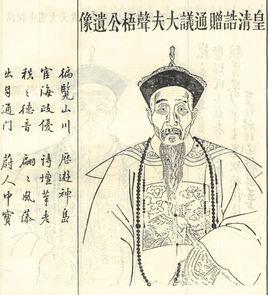 皇清誥贈通議大夫聲梧公遺像
徧覽山川 歷遊神島
宦海政優 詩壇筆老
秩秩德音 翩翩風藻
出自通門 蔚人中寶